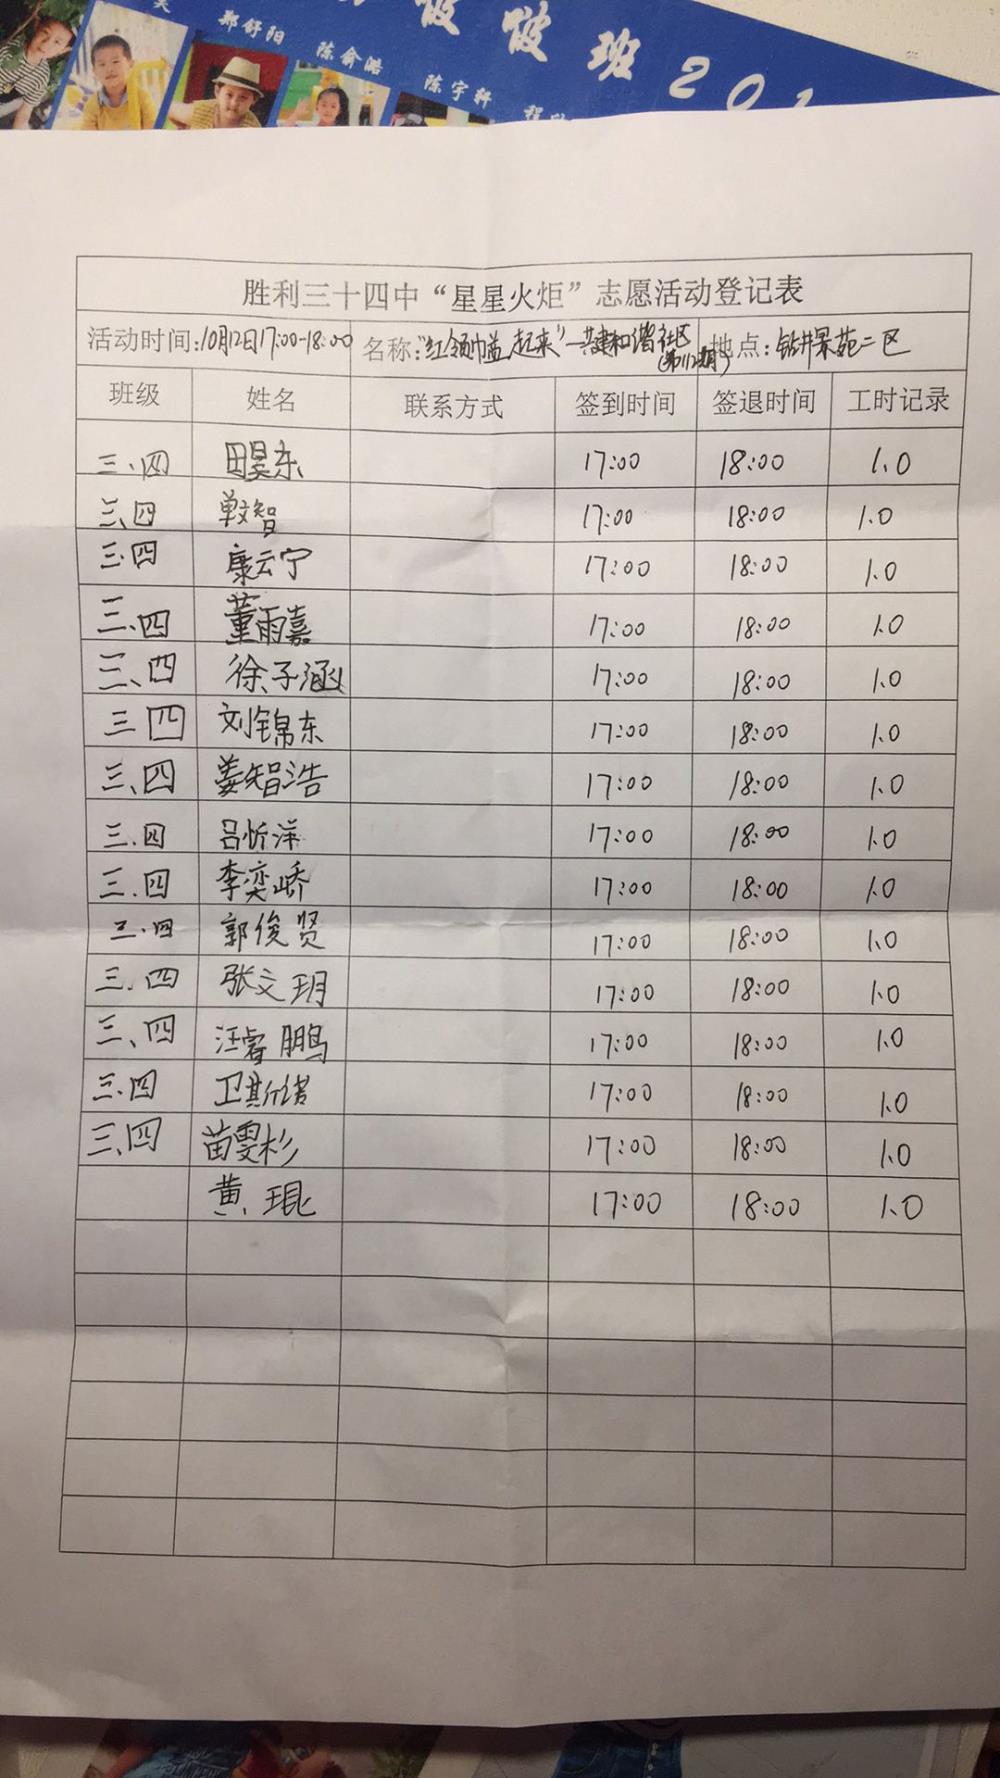 郑舒阳 陈俞澔 陈宇轩
班201
胜利三十四中“星星火炬”志愿活动登记表
活动时间:10月12日17:00-18:00 名称:“红领巾益起来”—共建和谐社区(第112期) 地点:钻井景苑二区
班级 姓名 联系方式 签到时间 签退时间 工时记录
三.四 田昊东 17:00 18:00 1.0
三.四 单文智 17:00 18:00 1.0
三.四 康云宁 17:00 18:00 1.0
三.四 董雨嘉 17:00 18:00 1.0
三、四 徐子涵 17:00 18:00 1.0
三 四 刘锦东 17:00 18:00 1.0
三、四 姜智浩 17:00 18:00 1.0
三.四 吕忻洋 17:00 18:00 1.0
三.四 李奕峤 17:00 18:00 1.0
三.四 郭俊贤 17:00 18:00 1.0
三.四 张文玥 17:00 18:00 1.0
三、四 汪睿鹏 17:00 18:00 1.0
三.四 卫斯诺 17:00 18:00 1.0
三、四 苗雯杉 17:00 18:00 1.0
黄琨 17:00 18:00 1.0